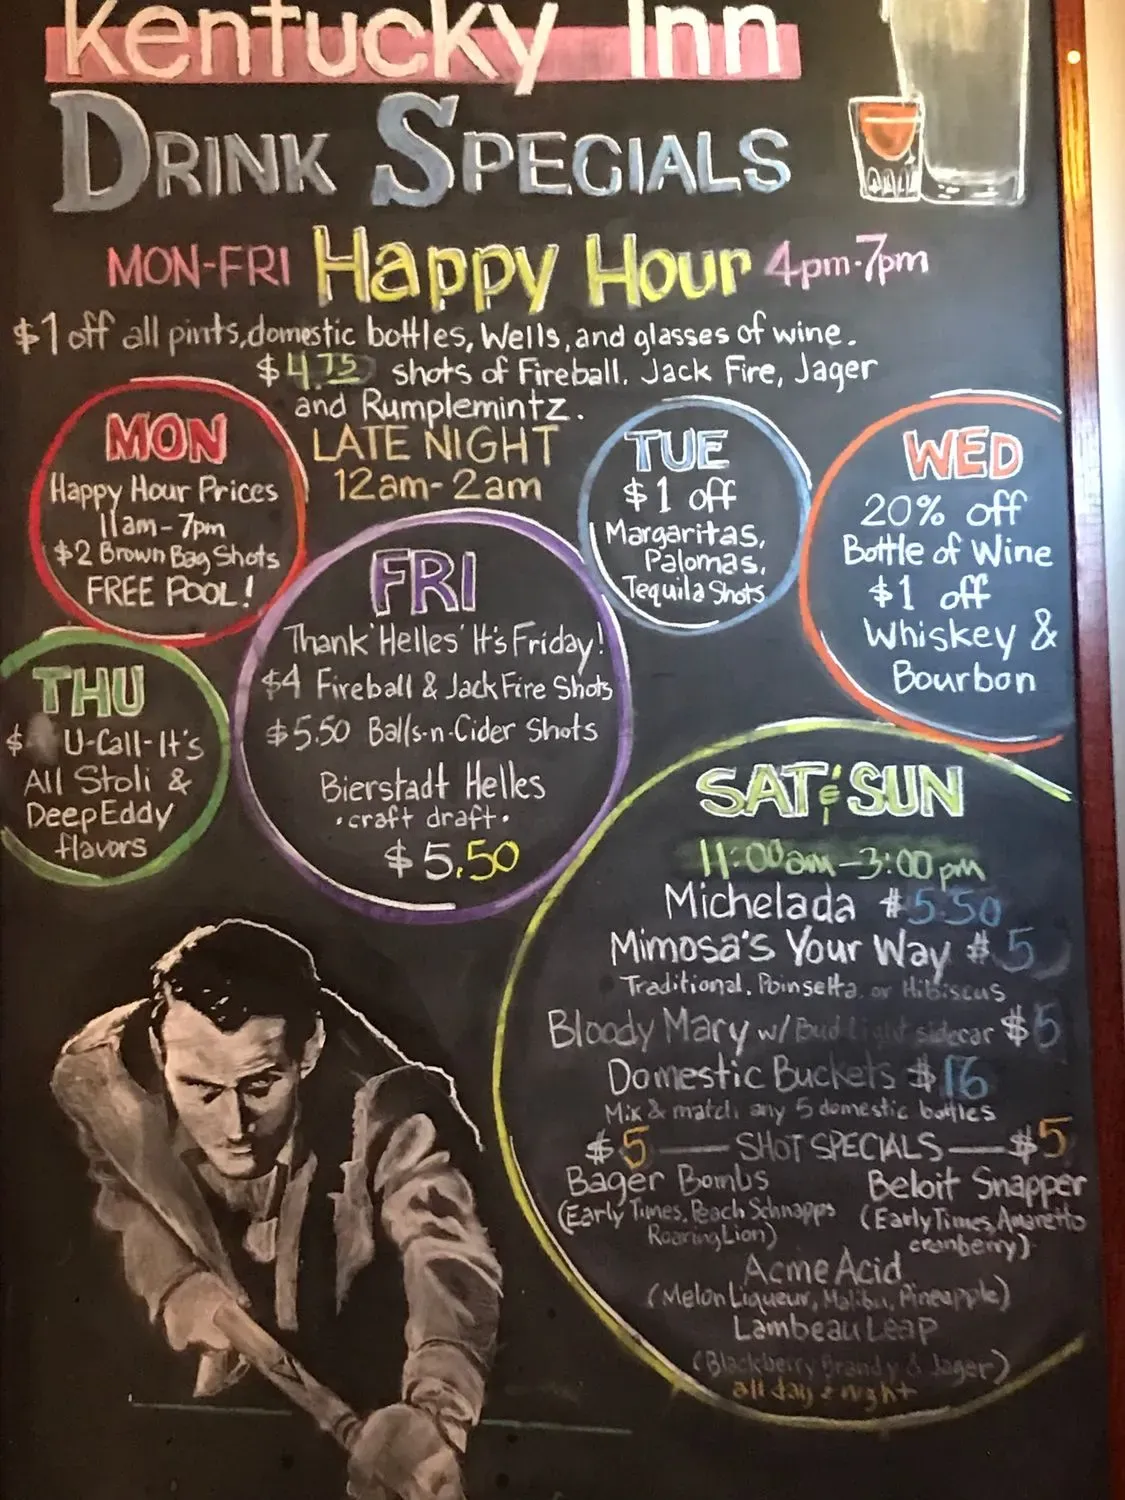 Kentucky Inn
DRINK SPECIALS
MON-FRI Happy Hour 4pm-7pm
$1 off all pints, domestic bottles, Wells, and glasses of wine.
$4.75 shots of Fireball, Jack Fire, Jager
and Rumplemintz.
LATE NIGHT
12am-2am
MON
Happy Hour Prices
11am-7pm
$2 Brown Bag Shots
FREE POOL!
TUE
$1 off
Margaritas,
Palomas,
Tequila Shots
WED
20% off
Bottle of Wine
$1 off
Whiskey &
Bourbon
THU
$ U-Call-It's
All Stoli &
Deep Eddy
flavors
FRI
Thank 'Helles' It's Friday!
$4 Fireball & Jack Fire Shots
$5.50 Balls-n-Cider Shots
Bierstadt Helles
·craft draft·
$5.50
SAT & SUN
11:00am-3:00pm
Michelada $5.50
Mimosa's Your Way $5
Traditional, Poinsetta, or Hibiscus
Bloody Mary w/ Bud Light sidecar $5
Domestic Buckets $16
Mix & match any 5 domestic bottles
$5 — SHOT SPECIALS — $5
Bager Bombs
(Early Times, Peach Schnapps
Roaring Lion)
Beloit Snapper
(Early Times, Amaretto
cranberry)
Acme Acid
(Melon Liqueur, Malibu, Pineapple)
Lambeau Leap
(Blackberry Brandy & Jager)
all day & night